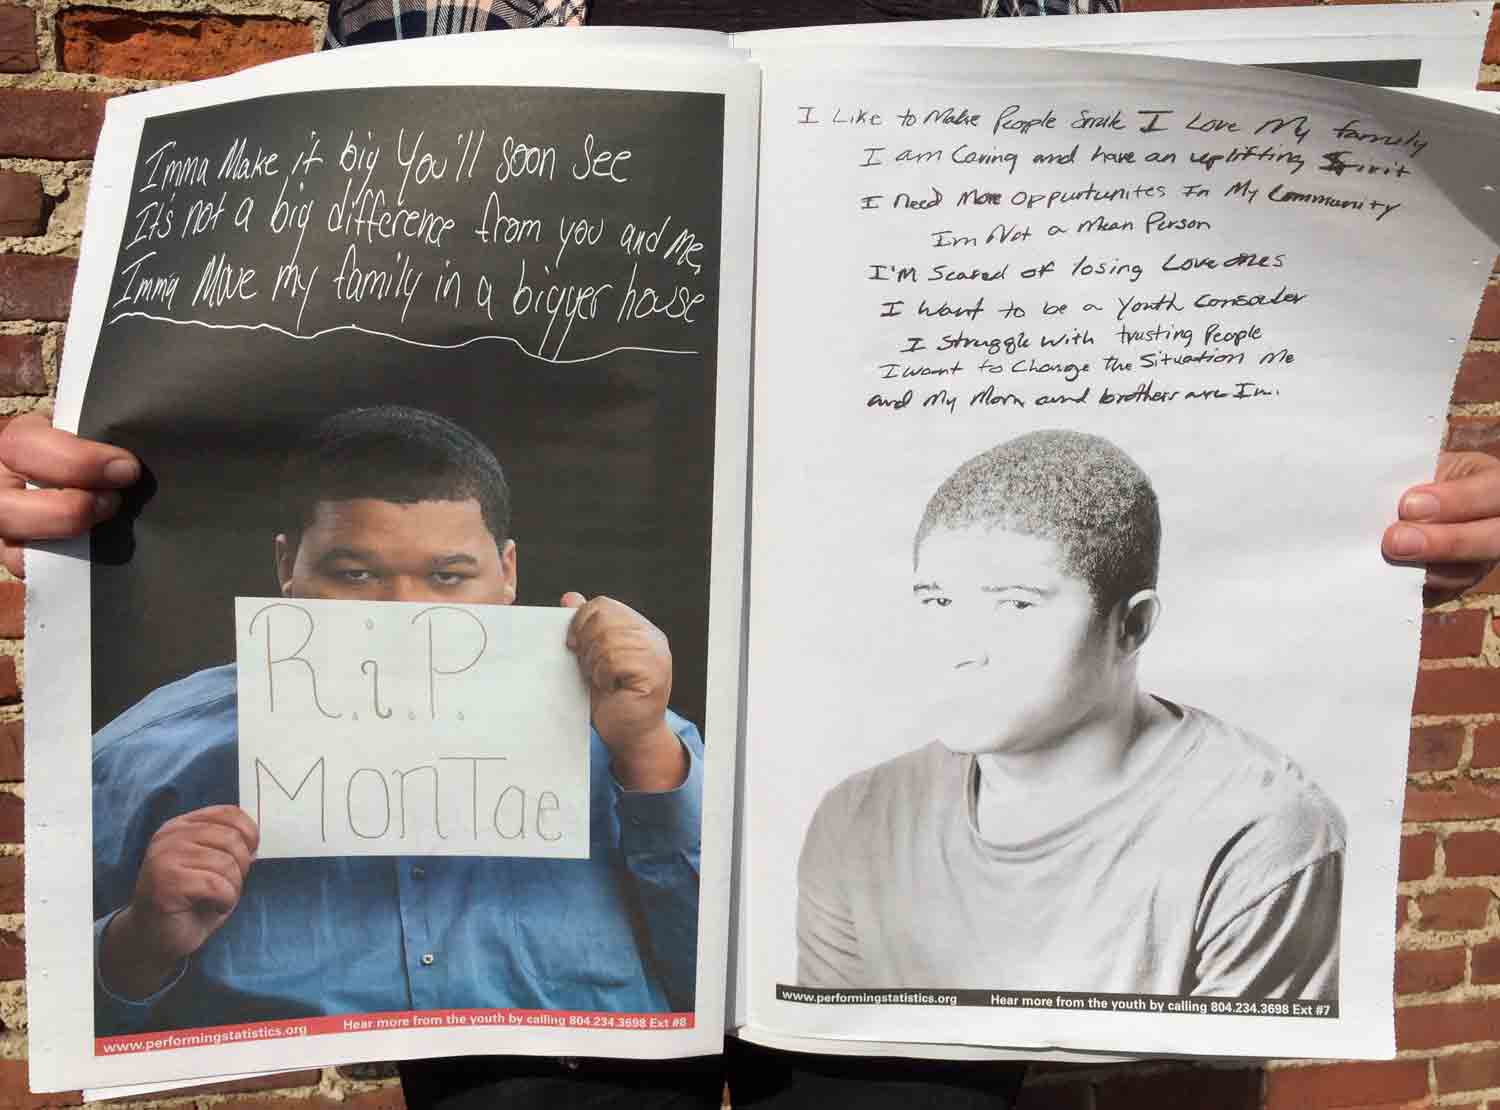 Imma Make it big You'll soon see
It's not a big difference from you and me,
Imma Move my family in a bigger house
R.i.P.
MonTae
www.performingstatistics.org
Hear more from the youth by calling 804.234.3698 Ext #8
I Like to Make People Smile I Love My family
I am Caring and have an uplifting Spirit
I need More oppurtunites In My Community
Im Not a Mean Person
I'M Scared of losing Love ones
I Want to be a Youth
I Struggle with trusting People
I want to Change the Situation Me
and My Mom and brothers are In.
www.performingstatistics.org
Hear more from the youth by calling 804.234.3698 Ext #7